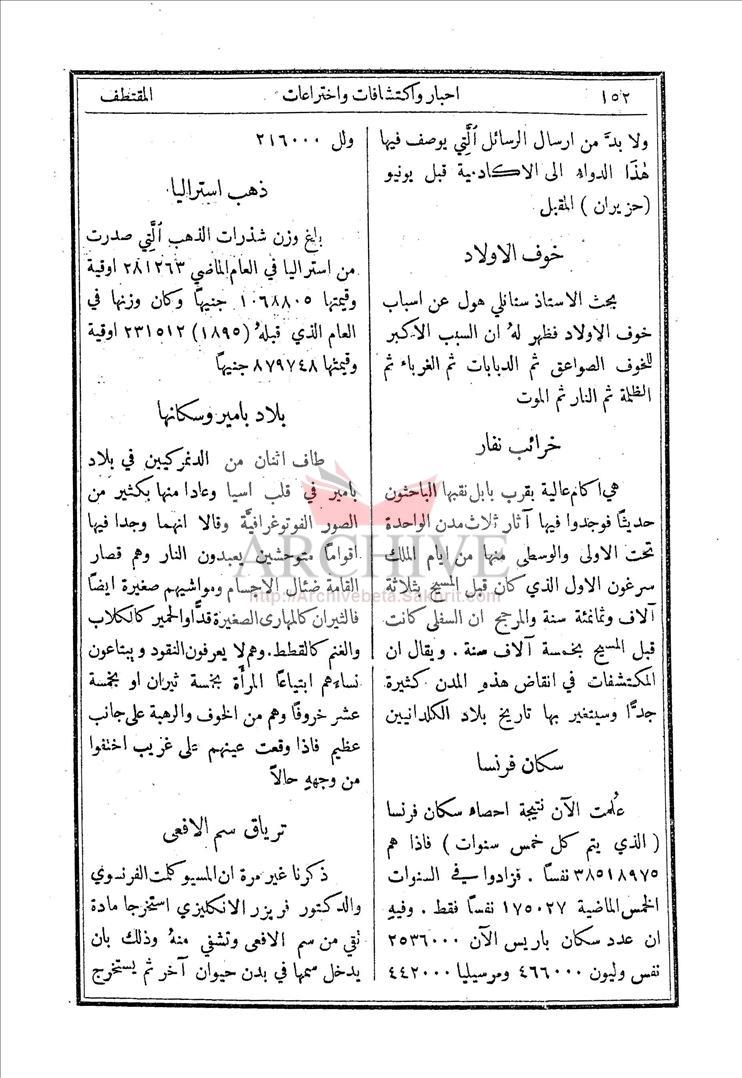 ١٥٢
اخبار واكتشافات واختراعات
المقتطف
ولا بدَّ من ارسال الرسائل الَّتي يوصف فيها
هٰذا الدواء الى الاكادمية قبل يونيو
(حزيران) المقبل
خوف الاولاد
بحث الاستاذ ستانلي هول عن اسباب
خوف الاولاد فظهر لهُ ان السبب الاكبر
للخوف الصواعق ثم الدبابات ثم الغرباء ثم
الظلمة ثم النار ثم الموت
خرائب نفار
هي اكام عالية بقرب بابل نقبها الباحثون
حديثًا فوجدوا فيها آثار ثلاث مدن الواحدة
تحت الاولى والوسطى منها من ايام الملك
سرغون الاول الذي كان قبل المسيح بثلاثة
آلاف وثمانمئة سنة والمرجح ان السفلى كانت
قبل المسيح بخمسة آلاف سنة . ويقال ان
المكتشفات في انقاض هذه المدن كثيرة
جدًّا وسيتغير بها تاريخ بلاد الكلدانيين
سكان فرنسا
عُلمت الآن نتيجة احصاء سكان فرنسا
(الذي يتم كل خمس سنوات) فاذا هم
٣٨٥١٨٩٧٥ نفسًا . فزادوا في السنوات
الخمس الماضية ١٧٥٠٢٧ نفسًا فقط . وفيهِ
ان عدد سكان باريس الآن ٢٥٣٦٠٠٠
نفس وليون ٤٦٦٠٠٠ ومرسيليا ٤٤٢٠٠٠
ولل ٢١٦٠٠٠
ذهب استراليا
بلغ وزن شذرات الذهب الَّتي صدرت
من استراليا في العام الماضي ٢٨١٢٦٣ اوقية
وقيمتها ١٠٦٨٨٠٥ جنيهًا وكان وزنها في
العام الذي قبلهُ (١٨٩٥) ٢٣١٥١٢ اوقية
وقيمتها ٨٧٩٧٤٨ جنيهًا
بلاد بامير وسكانها
طاف اثنان من الدنمركيين في بلاد
بامير في قلب اسيا وعادا منها بكثير من
الصور الفوتوغرافيَّة وقالا انهما وجدا فيها
اقوامًا متوحشين يعبدون النار وهم قصار
القامة ضئال الاجسام ومواشيهم صغيرة ايضًا
فالثيران كالمهارى الصغيرة قدًّا والحمير كالكلاب
والغنم كالقطط . وهم لا يعرفون النقود ويبتاعون
نساءهم ابتياعًا المرأة بخمسة ثيران او بخمسة
عشر خروفًا وهم من الخوف والرهبة على جانب
عظيم فاذا وقعت عينهم على غريب اختفوا
من وجههِ حالاً
ترياق سم الافعى
ذكرنا غير مرة ان المسيو كلمت الفرنسوي
والدكتور فريزر الانكليزي استخرجا مادة
تقي من سم الافعى وتشفي منهُ وذلك بان
يدخل سمها في بدن حيوان آخر ثم يستخرج
ARCHIVE
http://Archivebeta.Sakhrit.com